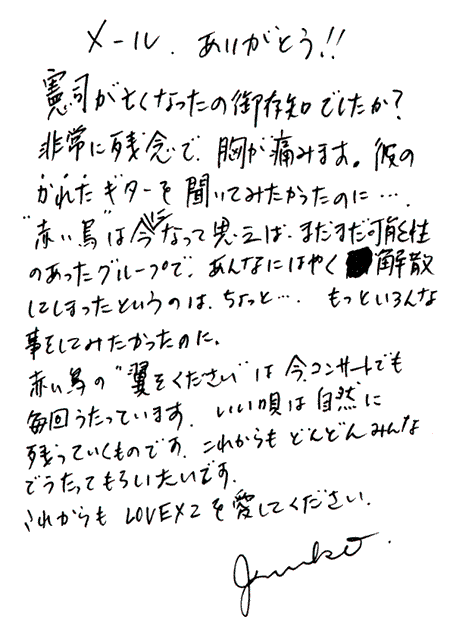 メール、ありがとう!!
憲司が亡くなったの御存知でしたか?
非常に残念で、胸が痛みます。彼の
かれたギターを聞いてみたかったのに…。
"赤い鳥"は今になって思えば、まだまだ可能性
のあったグループで、あんなにはやく 解散
してしまったというのは、ちょっと…。 もっといろんな
事をしてみたかったのに。
赤い鳥の"翼をください"は今、コンサートでも
毎回うたっています。いい唄は自然に
残っていくものです。これからも どんどんみんな
でうたってもらいたいです。
これからも LOVEX2を愛してください。
Junko.